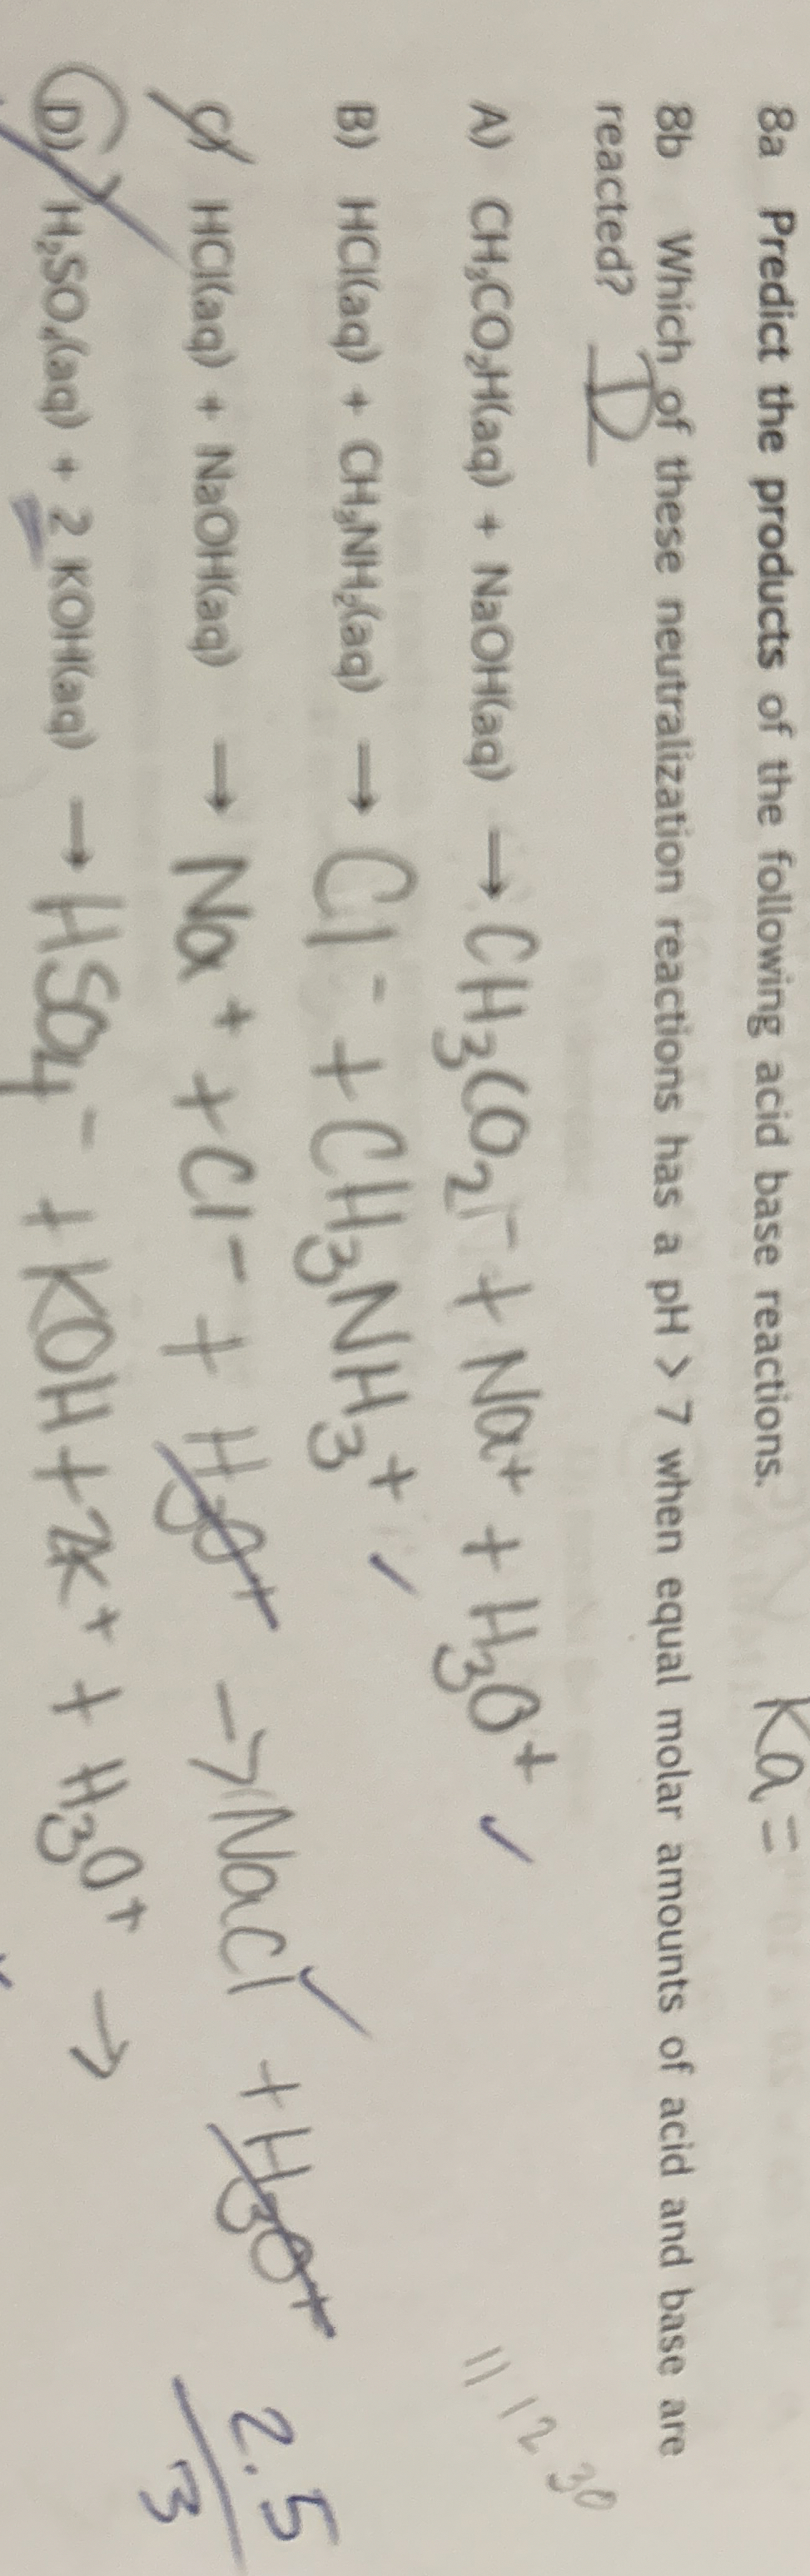 Ka =
8a Predict the products of the following acid base reactions.
8b Which of these neutralization reactions has a pH > 7 when equal molar amounts of acid and base are
reacted? D
A) CH₃CO₂H(aq) + NaOH(aq) → CH₃CO₂⁻ + Na⁺ + H₃O⁺ ✓
11 12 30
B) HCl(aq) + CH₃NH₂(aq) → Cl⁻ + CH₃NH₃⁺ ✓
C) HCl(aq) + NaOH(aq) → Na⁺ + Cl⁻ + H₃O⁺ → NaCl ✓ + H₃O⁺
D) H₂SO₄(aq) + 2 KOH(aq) → HSO₄⁻ + KOH + 2K⁺ + H₃O⁺ →
2.5
3